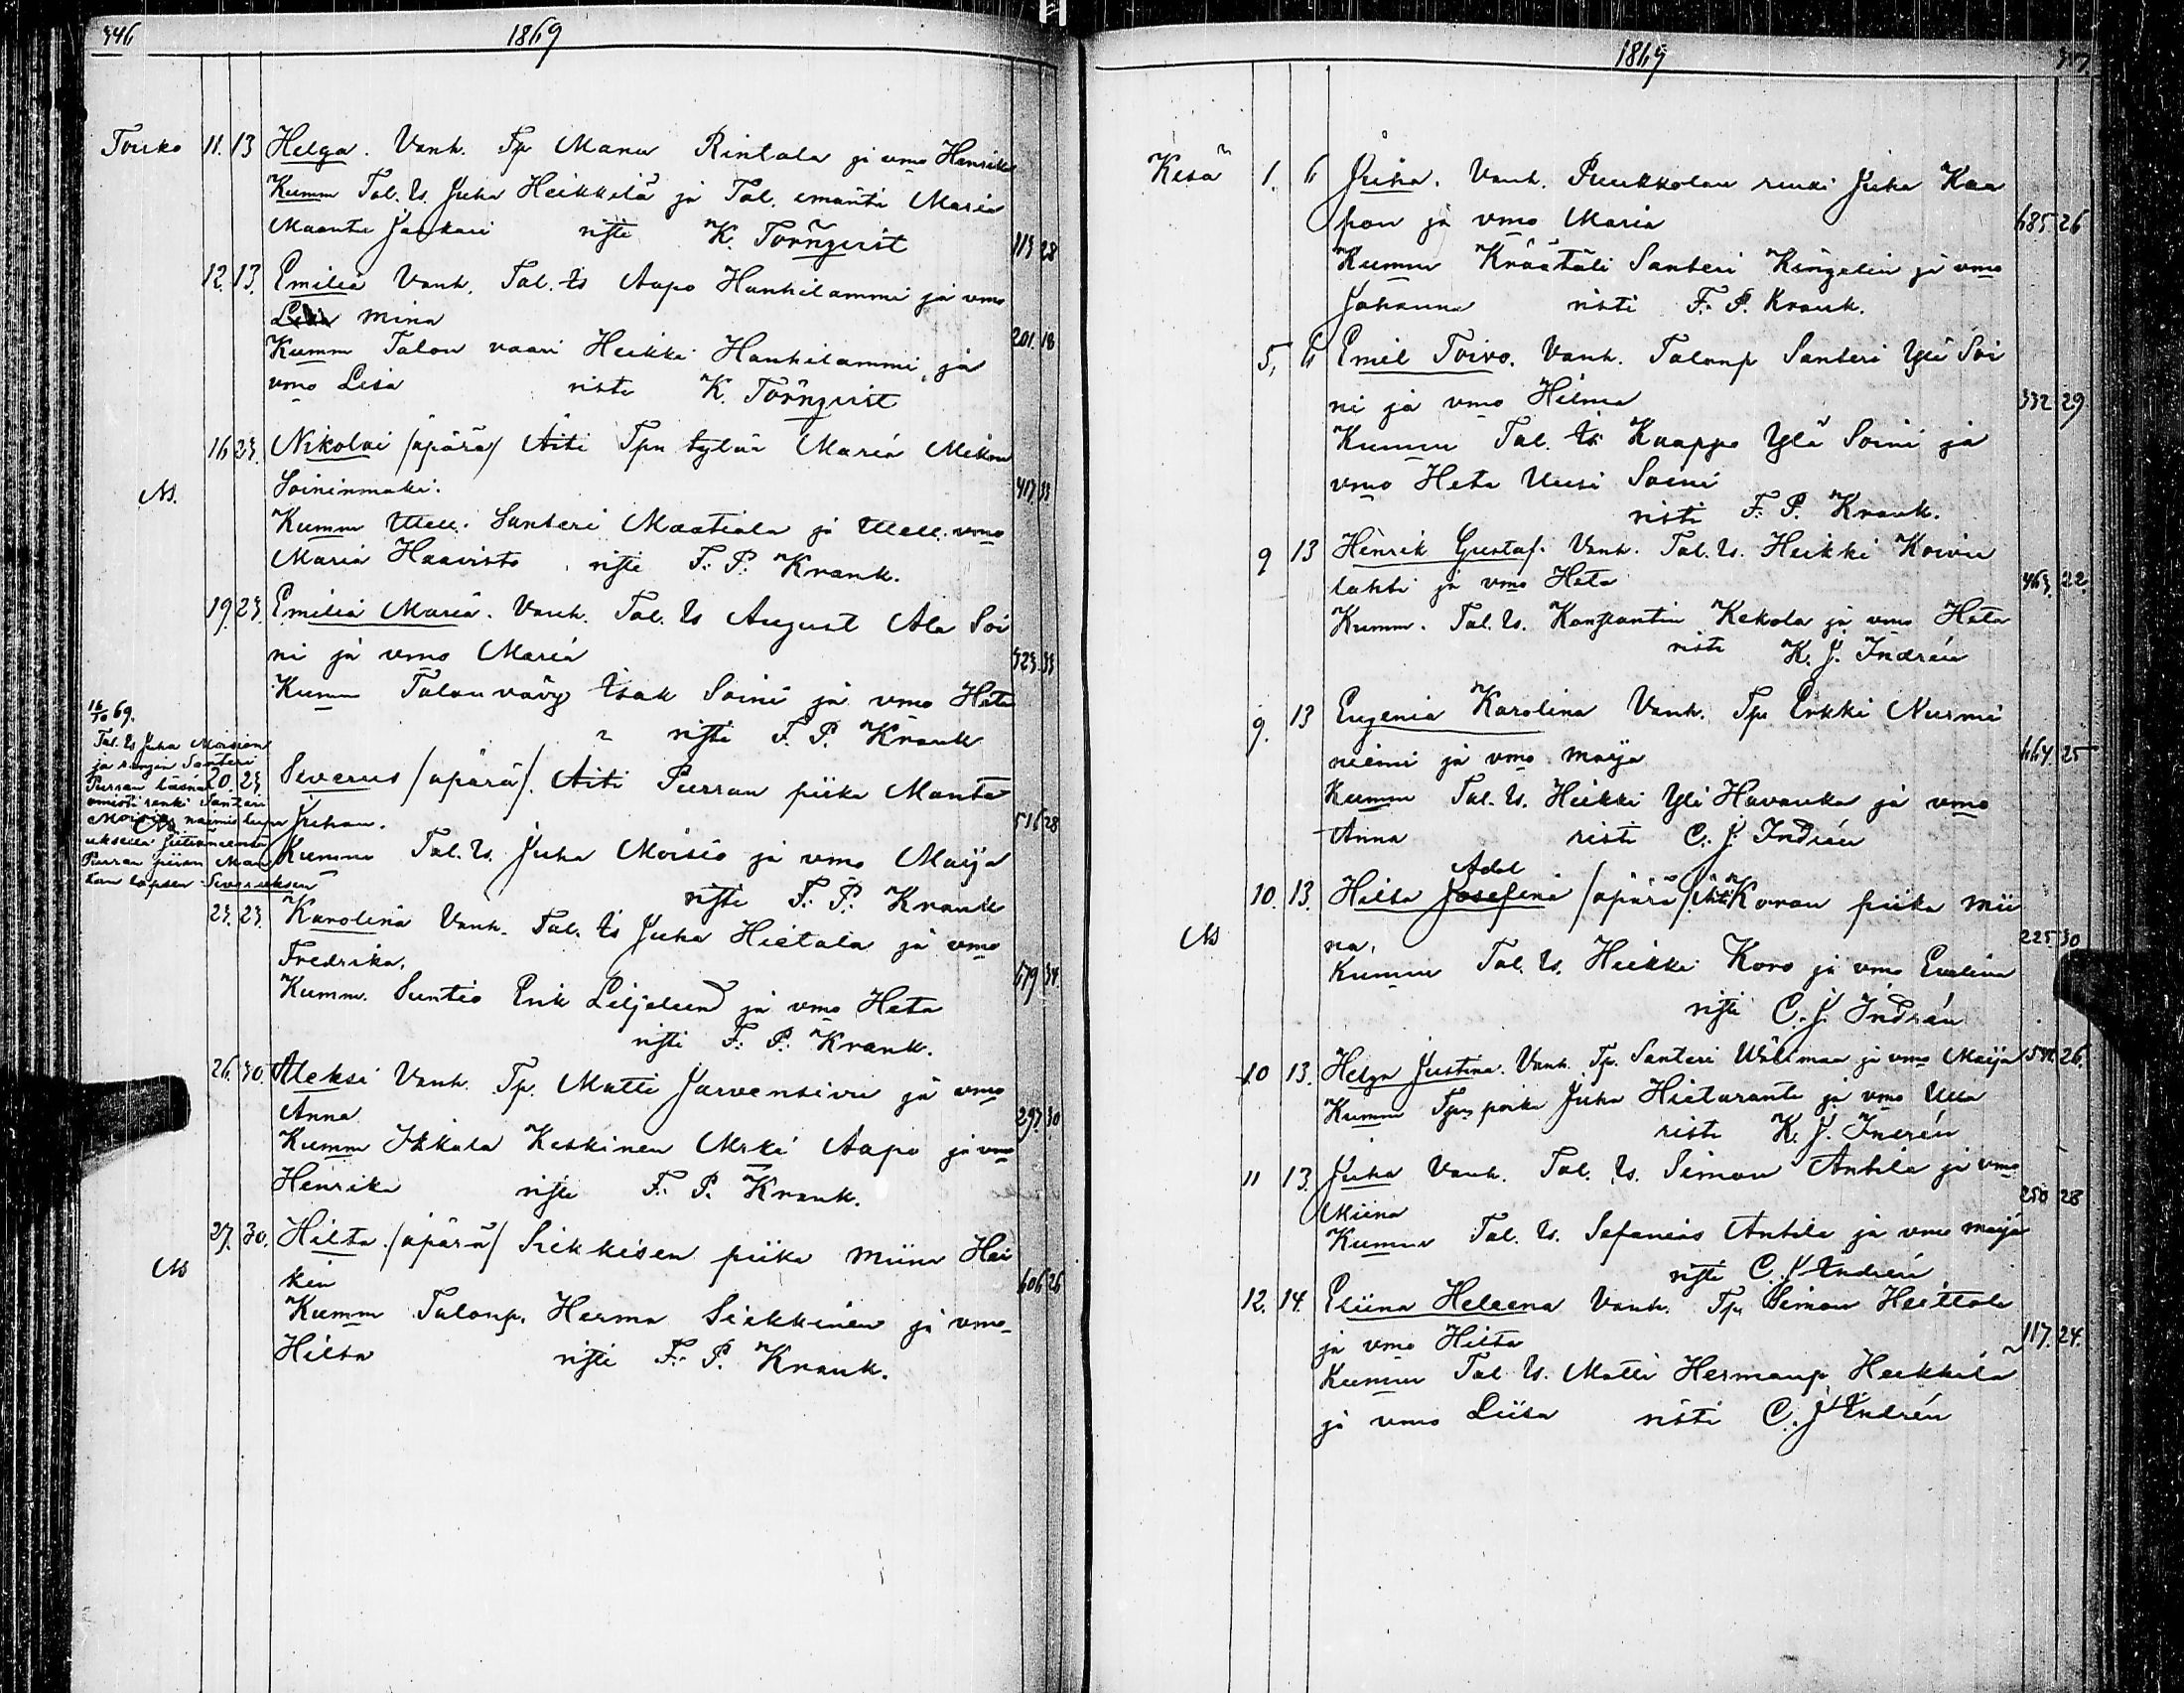 346
1869
Touko 11. 13 Helga. Vanh. Tp Manu Rintala ja vmo Henrika
Kumm Tal. Is. Juha Heikkilä ja Tal. emäntä Maria
Maantz Jankari risti K. Törnqvist
113 28
12. 13. Emilia Vanh. Tal. Is Aapo Hanhilammi ja vmo
Lisa Mina
201. 18
Kumm Talon vaari Heikki Hanhilammi, ja
vmo Lisa risti K. Törnqvist
16 23. Nikolai /äpärä/ Äiti Tpn tytär Maria Mikon
N. Soininmäki.
417. 33
Kumm Itell. Santeri Maatiala ja Itell. vmo
Maria Haavisto. risti F. P. Krank.
19. 23. Emilia Maria. Vanh. Tal. Is August Ala Soi
ni ja vmo Maria
323. 33
Kumm Talonvävy Isak Soini ja vmo Heta
risti F. P. Krank
16/10 69.
Tal. Is Juha Moision
ja rengin Santeri
Purran läsnä
omisti renki Santeri
Moisio naimis lupa
uksella
Purran piian Man
tan lapsen Severuksen
20. 23. Severus /äpärä/. Äiti Purran piika Manta
Juhan.
516 28
Kumm Tal. Is. Juha Moisio ja vmo Maija
risti F. P. Krank
23. 23. Karolina Vanh. Tal. Is Juha Hietala ja vmo
Fredrika.
679 34.
Kumm. Suntio Erik Liljelund ja vmo Heta
risti F. P. Krank.
26. 30. Aleksi Vanh. Tp. Matti Järvensivu ja vmo
Anna
297. 30
Kumm Ikkala Keskinen Mrki Aapo ja vmo
Henrika risti F. P. Krank.
27. 30. Hilta /äpärä/ Siekkisen piika Miina Hei
N kin
606 26
Kumm Talonp. Herma Siekkinen ja vmo
Hilta risti F. P. Krank.
1869
347.
Kesä 1. 6 Juha. Vanh. Puukkolan renki Juha Kaa
pon ja vmo Maria
685 26
Kumm Kräätäli Santeri Kingelin ja vmo
Johanna risti F. P. Krank.
5, 6 Emil Toivo. Vanh. Talonp Santeri Yli Soi
ni ja vmo Hilma
332 29.
Kumm Tal. Is. Kaappo Ylä Soini ja
vmo Heta Uusi Soini
risti F. P. Krank.
9 13 Henrik Gustaf. Vanh. Tal. Is. Heikki Koivu
lahti ja vmo Heta
463. 22.
Kumm. Tal. Is. Konstantin Kekola ja vmo Heta
risti K. J. Indrén
9. 13 Eugenia Karolina Vanh. Tp Erkki Nurmi
niemi ja vmo Maija
664. 25
Kumm Tal. Is. Heikki Yli Havanka ja vmo
Anna risti C. J. Indrén
Adol
10. 13. Hilta Josefina /äpärä/. Äiti Koron piika Mii
N na,
225 30
Kumm Tal. Is. Heikki Koro ja vmo Eveliina
risti C. J. Indrén
10 13. Helga Justina. Vanh. Tp. Santeri Wälimaa ja vmo Maija
26.
Kumm Tpn poika Juha Hietaranta ja vmo Ulla
risti K. J. Indrén
11 13. Juha Vanh. Tal. Is. Simon Antila ja vmo
Miina
250 28
Kumm Tal. Is. Sefanias Antila ja vmo Maija
risti C. J. Indrén
12. 14. Eliina Heleena Vanh. Tp. Simon Heittola
ja vmo Hilta
117. 24.
Kumm Tal Is. Matti Hermanp Heikkilä
ja vmo Liisa risti C. J. Indrén